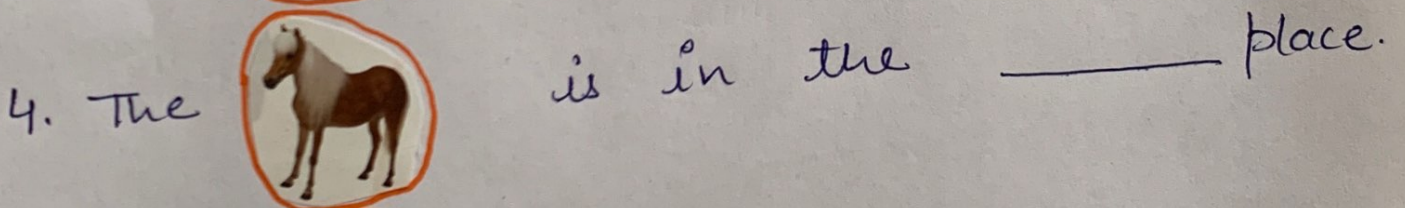 4. The is in the ______ place.